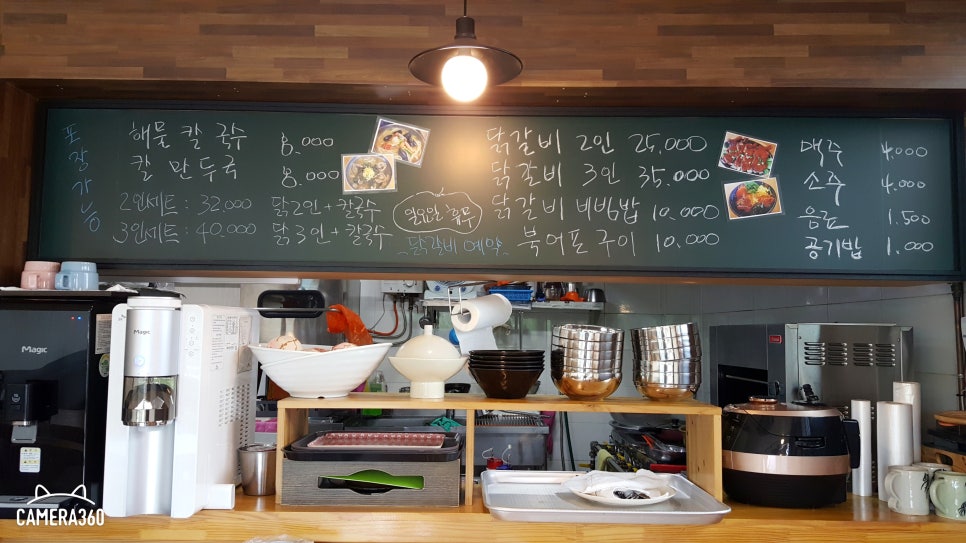 포장가능
해물 칼 국수 8.000
칼 만두국 8.000
2인세트 : 32.000 닭2인 + 칼국수
3인세트 : 40.000 닭3인 + 칼국수
일요일 휴무
닭갈비 예약
닭갈비 2인 25,000
닭갈비 3인 35,000
닭갈비 비빔밥 10,000
북어포구이 10,000
맥주 4.000
소주 4.000
음료 1.500
공기밥 1.000
MAGIC
Magic
CAMERA360